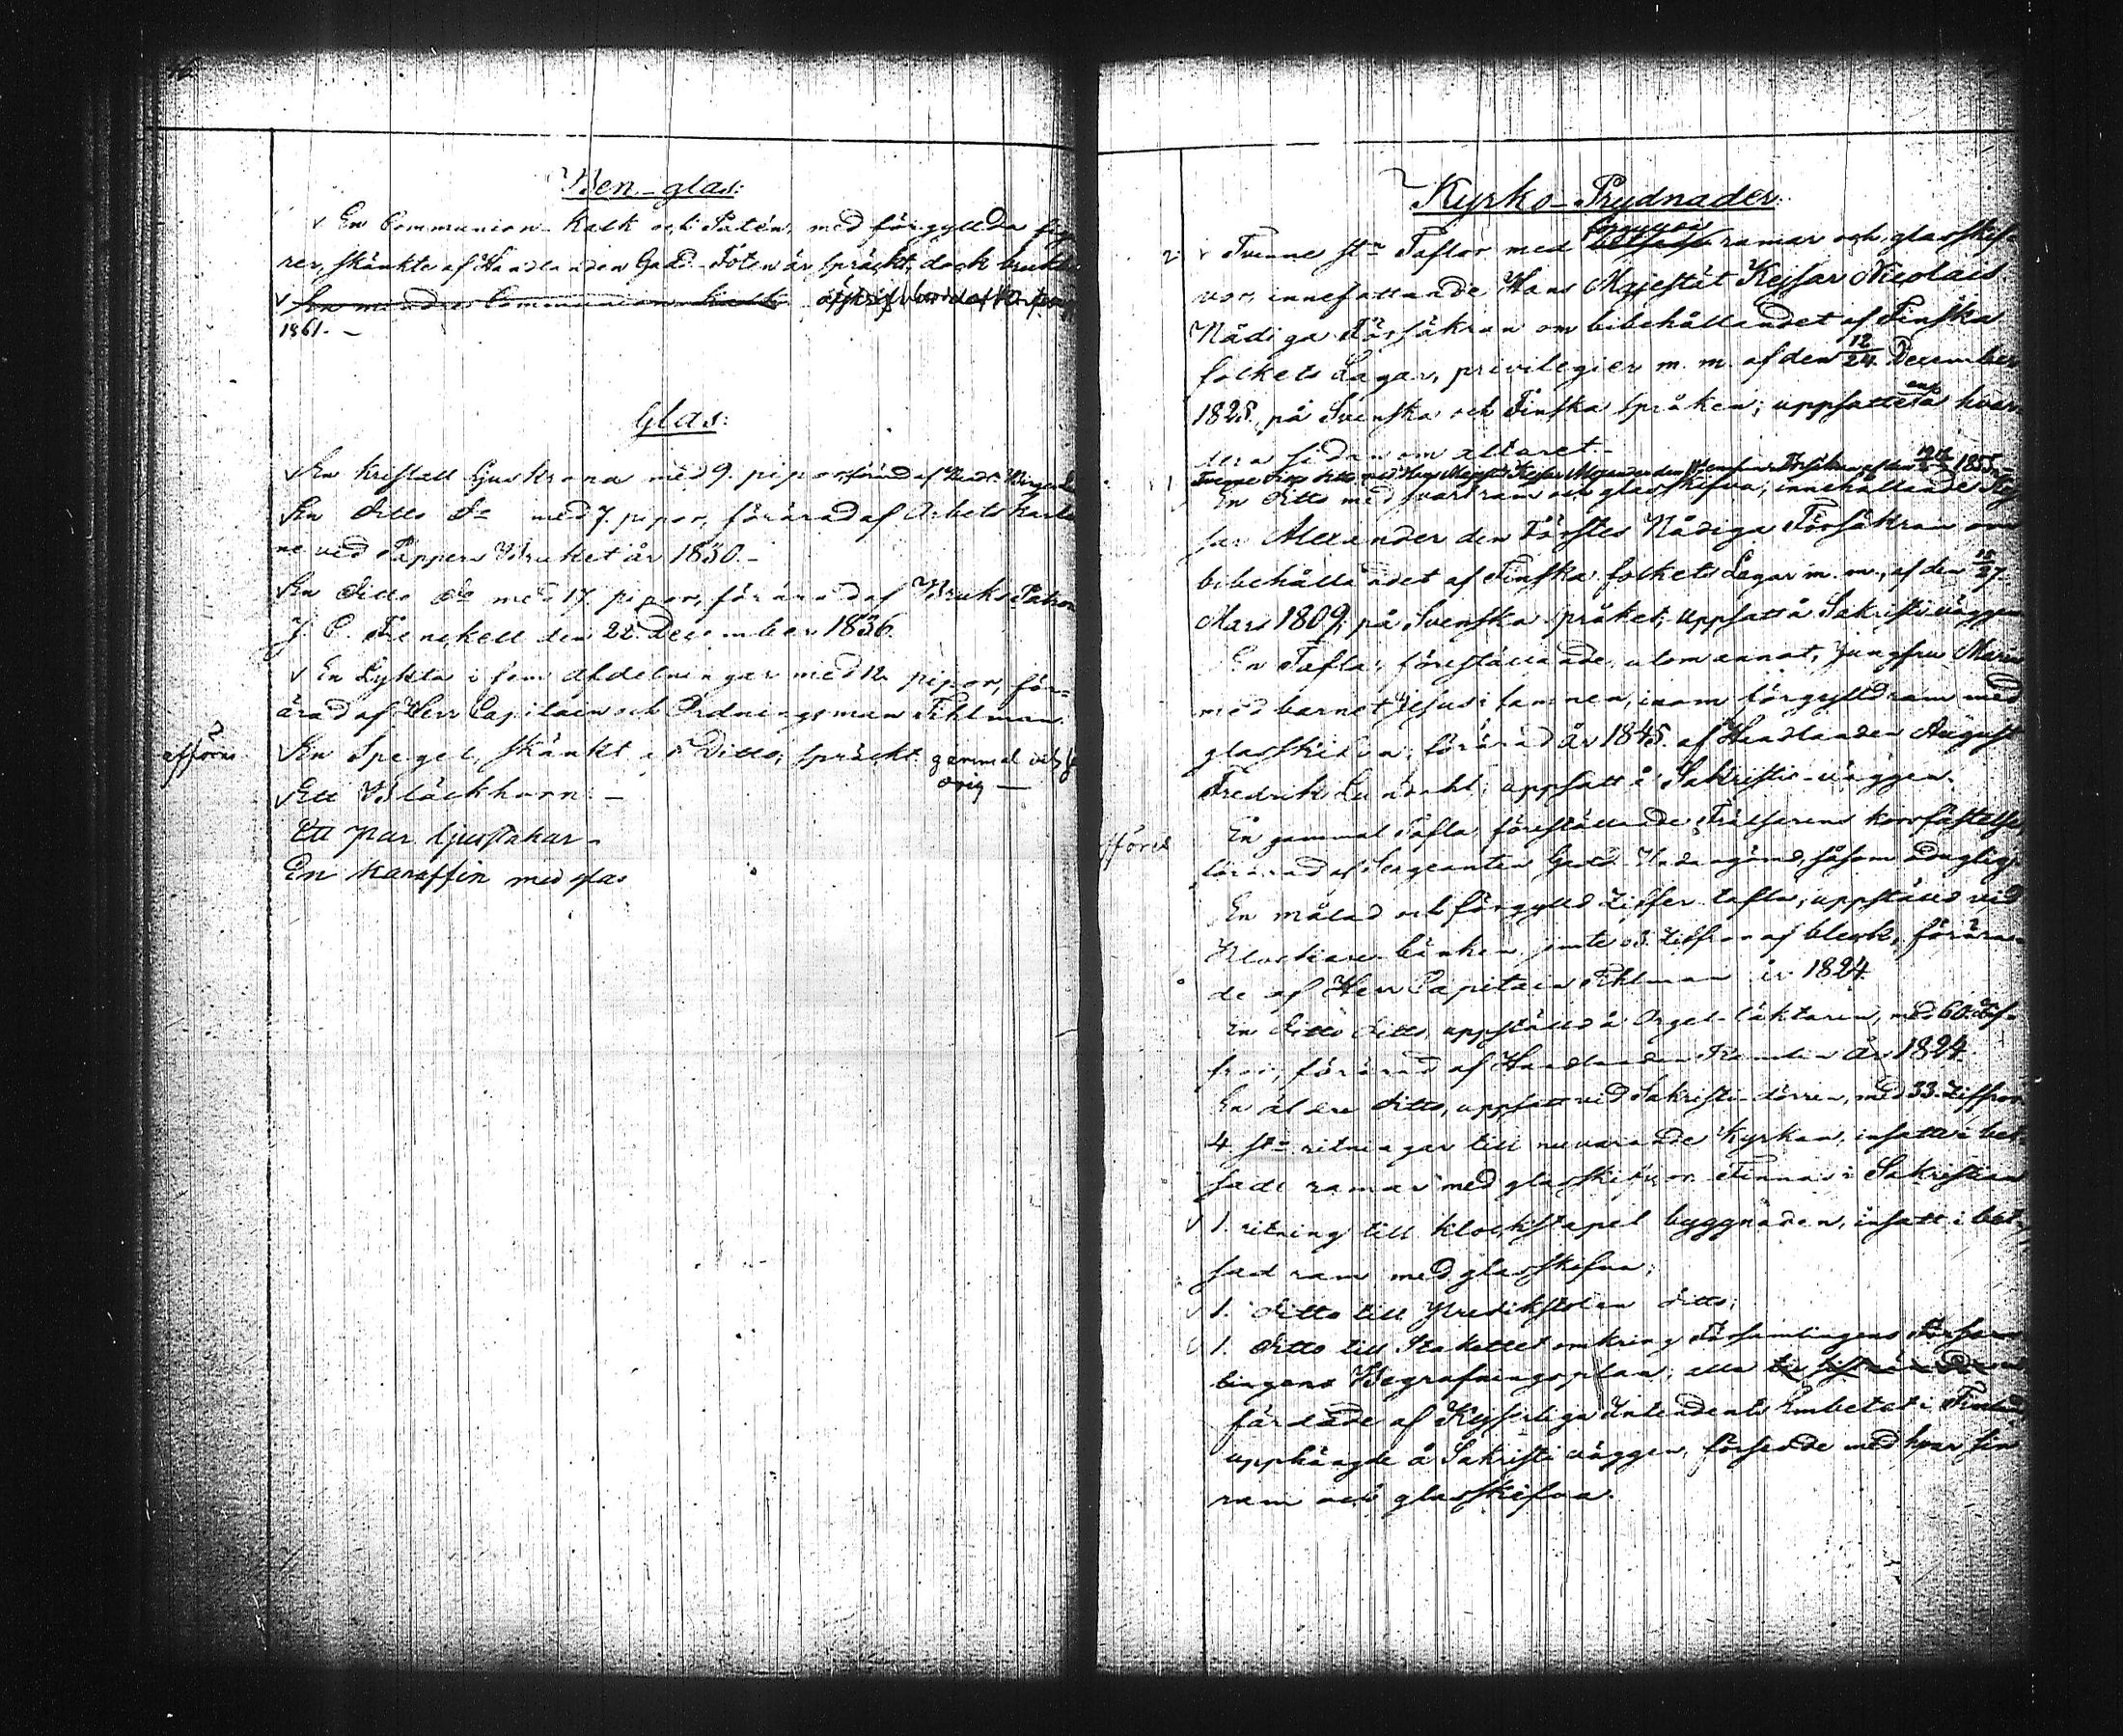 Ben-glas:
v En Communion-Kalk och Patén, med förgyllda figu
rer, skänkte af Handlanden Gadd. Foten är spräckt, dock brukb.
v En mindre Communion Kalk
1861. -
Glas:
v En Kristall Ljuskrona med 9. pipor
En ditto do med 7. pipor, förärad af Arbets karlar
ne vid Pappers Bruket år 1830. -
En ditto do med 17. pipor, förärad af Bruks Patron
J. C. Frenckell den 22. December 1836.
v En Lykta i fem afdelningar med 12 pipor, för-
ärad af Herr Capitain och Ordningsman Fihlman.
afföres En Spegel, skänkt af Ditto, spräckt. gammal
v Ett Bläckhorn. -
Ett par ljusstakar -
En Karaffin med glas
Kyrko-Prydnader.
2 v Tvenne st. Taflor med förgyllda betsade ramar och glasskif-
vor, innefattande Hans Majestät Kejsar Nicolais
Nådiga Försäkran om bibehållandet af Finska
folkets Lagar, privilegier m. m. af den 12/24 December
1825, på Svenska och Finska språken; uppsatte en å hvar-
dera sidan om altaret. -
Tvenne ditto med Hans Majestät Kejsar Alexander den 1855
En ditto med svart ram och glasskifva, innehållande Kej
sar Alexander den Förstes Nådiga Försäkran om
bibehållandet af Finska folkets Lagar m. m., af den 15/27
Mars 1809, på Svenska språket; uppsatt å Sakristi väggen
En Tafla, föreställande, utom annat, Jungfru Maria
med barnet Jesus i famnen, inom förgylld ram med
glasskifva; förärad år 1845. af Handlanden August
Fredrik Lundahl; uppsatt å Sakristie-väggen.
afföres En gammal Tafla, föreställande Frälsarens korsfästelse,
förärad af Sergeanten
En målad och förgylld ziffer tafla, uppställd vid
Klockare bänken, jemte ziffror af bleck, förära-
de af Herr Capitain Fihlman år 1824.
En ditto ditto, uppställd å Orgel-läktaren, med 60 zif-
fror, förärad af Handlanden år 1824.
En äldre ditto, uppsatt vid Sakristi-dörren, med 33. ziffror
4. st. ritningar till nuvarande Kyrkan, insatte i bet-
sade ramar med glasskifvor. Finnas i Sakristian
v 1. ritning till klockstapel byggnaden, insatt i bet-
sad ram med glasskifva;
v 1. ditto till Predikstolen ditto;
v 1. ditto till Stakettet omkring Församlingens Försam
lingens Begrafningsplan; alla
färdade af Kejserliga Intendents Embetet i Finland,
upphängde å Sakristi väggen, försedde med hvar sin
ram och glasskifva.